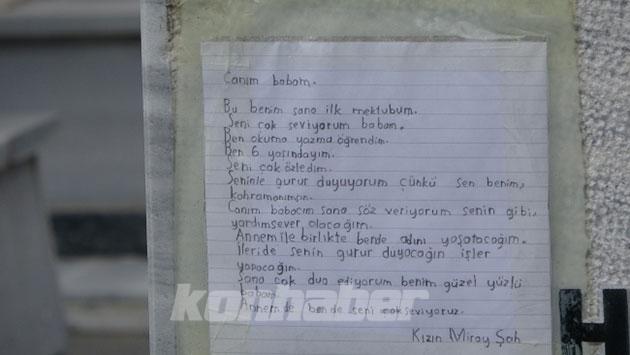 Canım babam.
Bu benim sana ilk mektubum.
Seni çok seviyorum babam.
Ben okuma yazma öğrendim.
Ben 6 yaşındayım.
Seni çok özledim.
Seninle gurur duyuyorum çünkü sen benim,
kahramanımsın.
Canım babacım sana söz veriyorum senin gibi,
yardımsever olacağım.
Annem ile birlikte bende adını yaşatacağım.
İleride senin gurur duyacağın işler
yapacağım.
Sana çok dua ediyorum benim güzel yüzlü
babam.
Annemde bende seni çok seviyoruz.
Kızın Miray Şah
konhaber
H